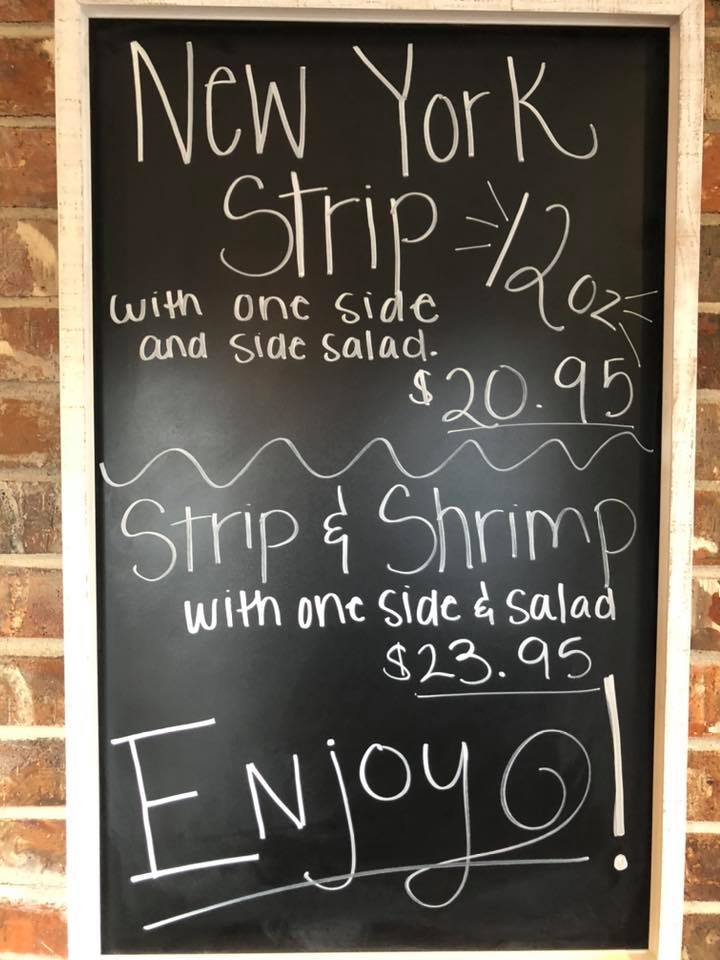 New York
Strip 12oz
with one side
and side salad.
$20.95
Strip & Shrimp
with one side & salad
$23.95
Enjoy!